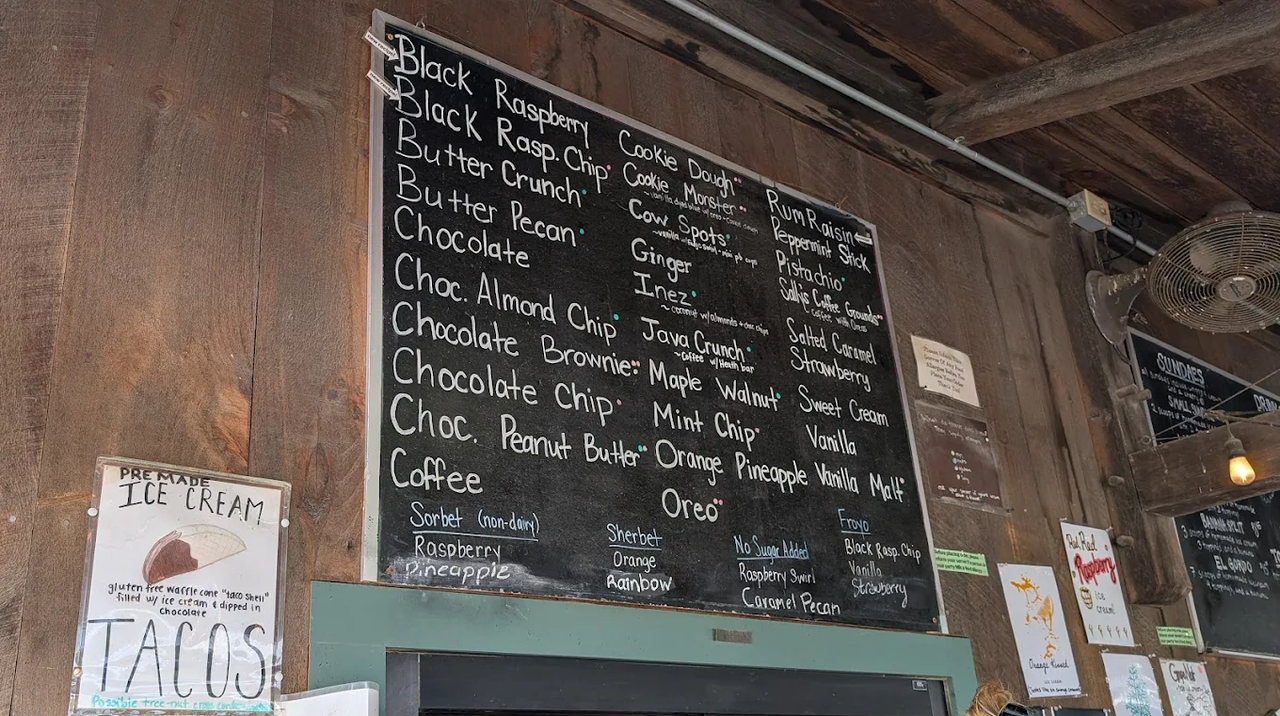 Black Raspberry
Black Rasp. Chip
Butter Crunch
Butter Pecan
Chocolate
Choc. Almond Chip
Chocolate Brownie
Chocolate Chip
Choc. Peanut Butter
Coffee
Cookie Dough
Cookie Monster
Cow Spots
Ginger
Inez
~coconut w/almonds + choc chips
Java Crunch
~Coffee w/ Heath bar
Maple Walnut
Mint Chip
Orange Pineapple
Oreo
Rum Raisin
Peppermint Stick
Pistachio
Sally's Coffee Grounds
Coffee with Oreos
Salted Caramel
Strawberry
Sweet Cream
Vanilla
Vanilla Malt
Sorbet (non-dairy)
Raspberry
Pineapple
Sherbet
Orange
Rainbow
No Sugar Added
Raspberry Swirl
Caramel Pecan
Froyo
Black Rasp. Chip
Vanilla
Strawberry
PRE MADE
ICE CREAM
gluten free waffle cone "taco shell"
filled w/ ice cream & dipped in
chocolate
TACOS
SUNDAES
BANANA SPLIT
EL GORDO
Red Red
Raspberry
ice
cream!
Orange Kissed